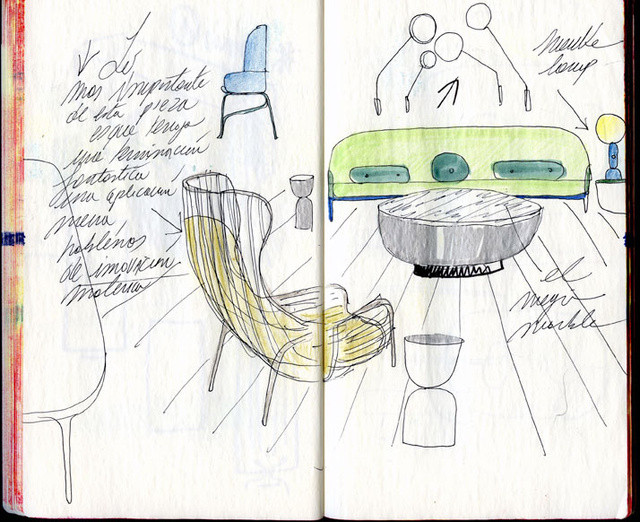 Lo
mas importante
de esta pieza
es que tenga
una terminación
fantastica
una aplicación
nueva
hablemos
de innovacion
material
lamp
el
marble